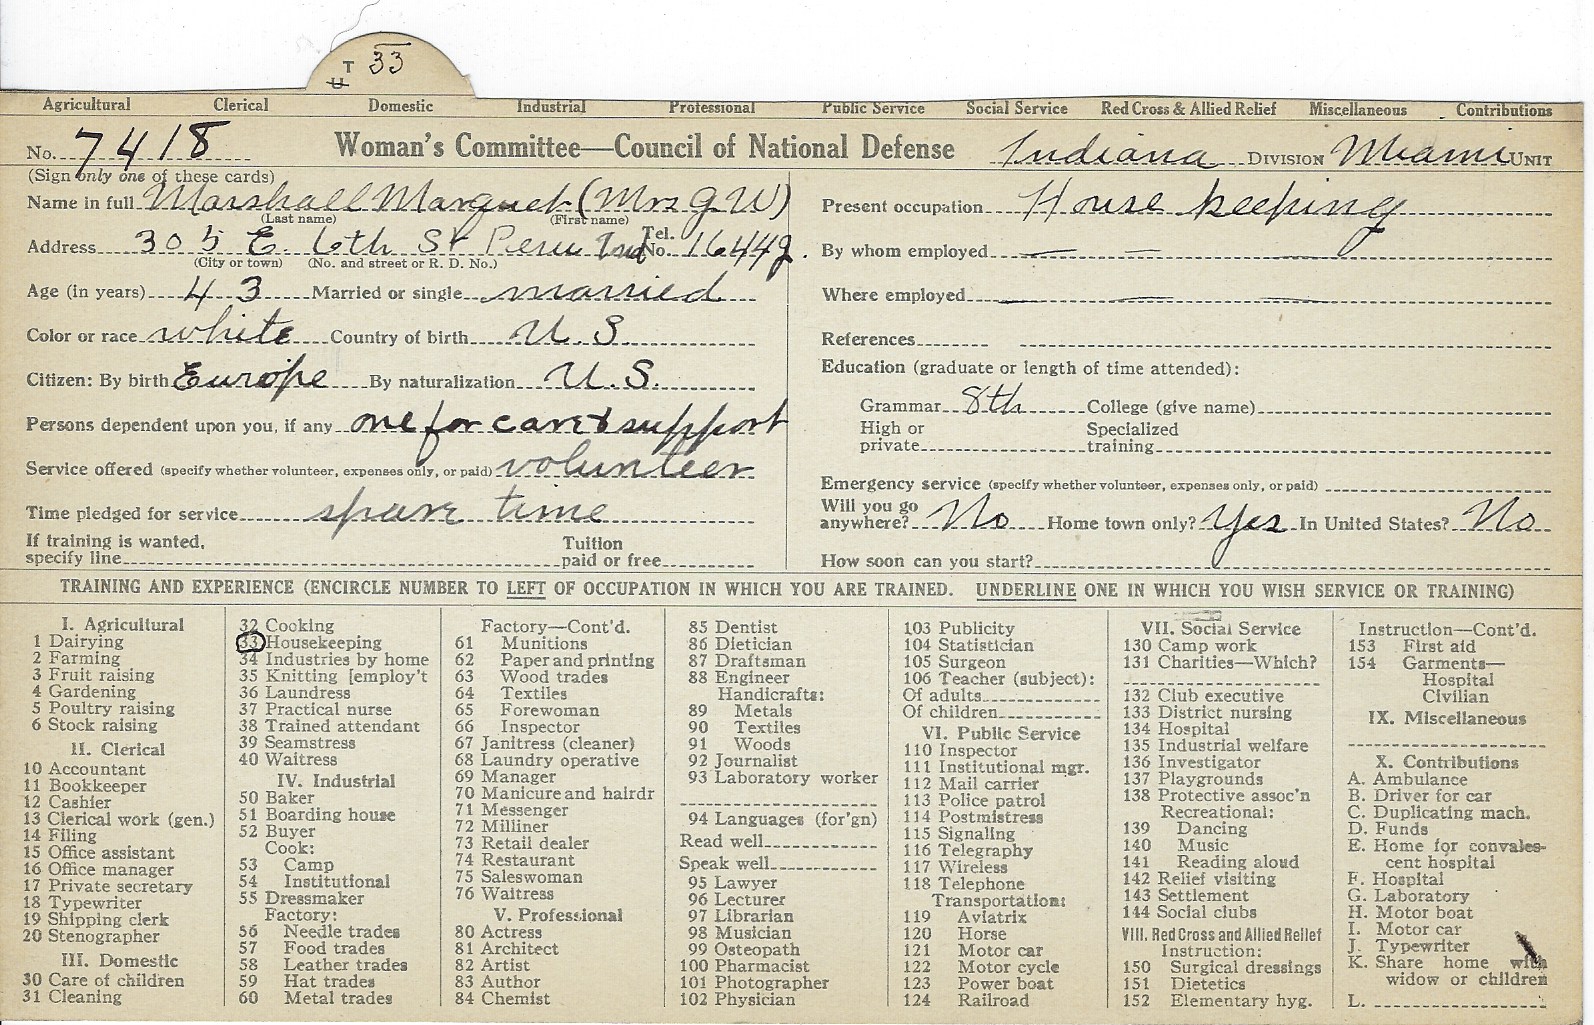 T 33
U
Agricultural Clerical Domestic Industrial Professional Public Service Social Service Red Cross & Allied Relief Miscellaneous Contributions
No. 7418 Woman's Committee—Council of National Defense Indiana DIVISION Miami UNIT
(Sign only one of these cards)
Name in full Marshall Marguet (Mrs G W)
(Last name) (First name)
Address 305 E. 6th St Peru Ind Tel. No. 1644g.
(City or town) (No. and street or R. D. No.)
Age (in years) 43 Married or single married
Color or race white Country of birth U. S
Citizen: By birth Europe By naturalization U. S.
Persons dependent upon you, if any one for care & support
Service offered (specify whether volunteer, expenses only, or paid) volunteer
Time pledged for service spare time
If training is wanted, specify line Tuition paid or free
Present occupation House keeping
By whom employed — — —
Where employed — — —
References
Education (graduate or length of time attended):
Grammar 8th College (give name)
High or private Specialized training
Emergency service (specify whether volunteer, expenses only, or paid)
Will you go anywhere? No Home town only? Yes In United States? No
How soon can you start?
TRAINING AND EXPERIENCE (ENCIRCLE NUMBER TO LEFT OF OCCUPATION IN WHICH YOU ARE TRAINED. UNDERLINE ONE IN WHICH YOU WISH SERVICE OR TRAINING)
I. Agricultural
1 Dairying
2 Farming
3 Fruit raising
4 Gardening
5 Poultry raising
6 Stock raising
II. Clerical
10 Accountant
11 Bookkeeper
12 Cashier
13 Clerical work (gen.)
14 Filing
15 Office assistant
16 Office manager
17 Private secretary
18 Typewriter
19 Shipping clerk
20 Stenographer
III. Domestic
30 Care of children
31 Cleaning
32 Cooking
33 Housekeeping
34 Industries by home
35 Knitting [employ't
36 Laundress
37 Practical nurse
38 Trained attendant
39 Seamstress
40 Waitress
IV. Industrial
50 Baker
51 Boarding house
52 Buyer
Cook:
53 Camp
54 Institutional
55 Dressmaker
Factory:
56 Needle trades
57 Food trades
58 Leather trades
59 Hat trades
60 Metal trades
Factory—Cont'd.
61 Munitions
62 Paper and printing
63 Wood trades
64 Textiles
65 Forewoman
66 Inspector
67 Janitress (cleaner)
68 Laundry operative
69 Manager
70 Manicure and hairdr
71 Messenger
72 Milliner
73 Retail dealer
74 Restaurant
75 Saleswoman
76 Waitress
V. Professional
80 Actress
81 Architect
82 Artist
83 Author
84 Chemist
85 Dentist
86 Dietician
87 Draftsman
88 Engineer
Handicrafts:
89 Metals
90 Textiles
91 Woods
92 Journalist
93 Laboratory worker
94 Languages (for'gn)
Read well
Speak well
95 Lawyer
96 Lecturer
97 Librarian
98 Musician
99 Osteopath
100 Pharmacist
101 Photographer
102 Physician
103 Publicity
104 Statistician
105 Surgeon
106 Teacher (subject):
Of adults
Of children
VI. Public Service
110 Inspector
111 Institutional mgr.
112 Mail carrier
113 Police patrol
114 Postmistress
115 Signaling
116 Telegraphy
117 Wireless
118 Telephone
Transportation:
119 Aviatrix
120 Horse
121 Motor car
122 Motor cycle
123 Power boat
124 Railroad
VII. Social Service
130 Camp work
131 Charities—Which?
132 Club executive
133 District nursing
134 Hospital
135 Industrial welfare
136 Investigator
137 Playgrounds
138 Protective assoc'n
Recreational:
139 Dancing
140 Music
141 Reading aloud
142 Relief visiting
143 Settlement
144 Social clubs
VIII. Red Cross and Allied Relief
Instruction:
150 Surgical dressings
151 Dietetics
152 Elementary hyg.
Instruction—Cont'd.
153 First aid
154 Garments—
Hospital
Civilian
IX. Miscellaneous
X. Contributions
A. Ambulance
B. Driver for car
C. Duplicating mach.
D. Funds
E. Home for convales-
cent hospital
F. Hospital
G. Laboratory
H. Motor boat
I. Motor car
J. Typewriter
K. Share home with
widow or children
L.